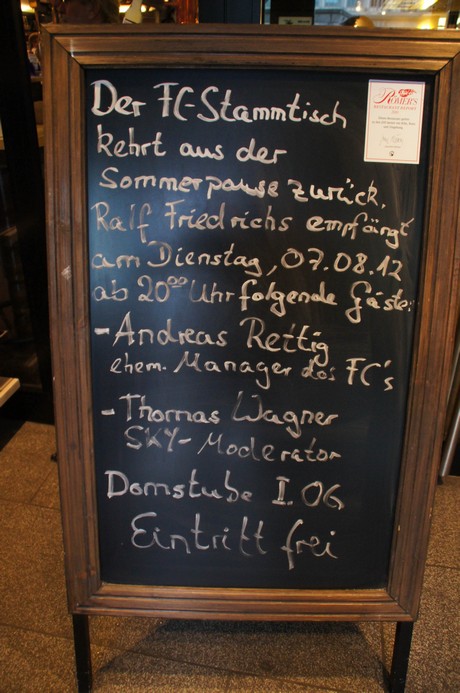 Der FC-Stammtisch
kehrt aus der
Sommerpause zurück.
Ralf Friedrichs empfängt
am Dienstag, 07.08.12
ab 20⁰⁰ Uhr folgende Gäste:
- Andreas Rettig
ehem. Manager des FC's
- Thomas Wagner
SKY-Moderator
Domstube I. OG
Eintritt frei
RÖMER'S